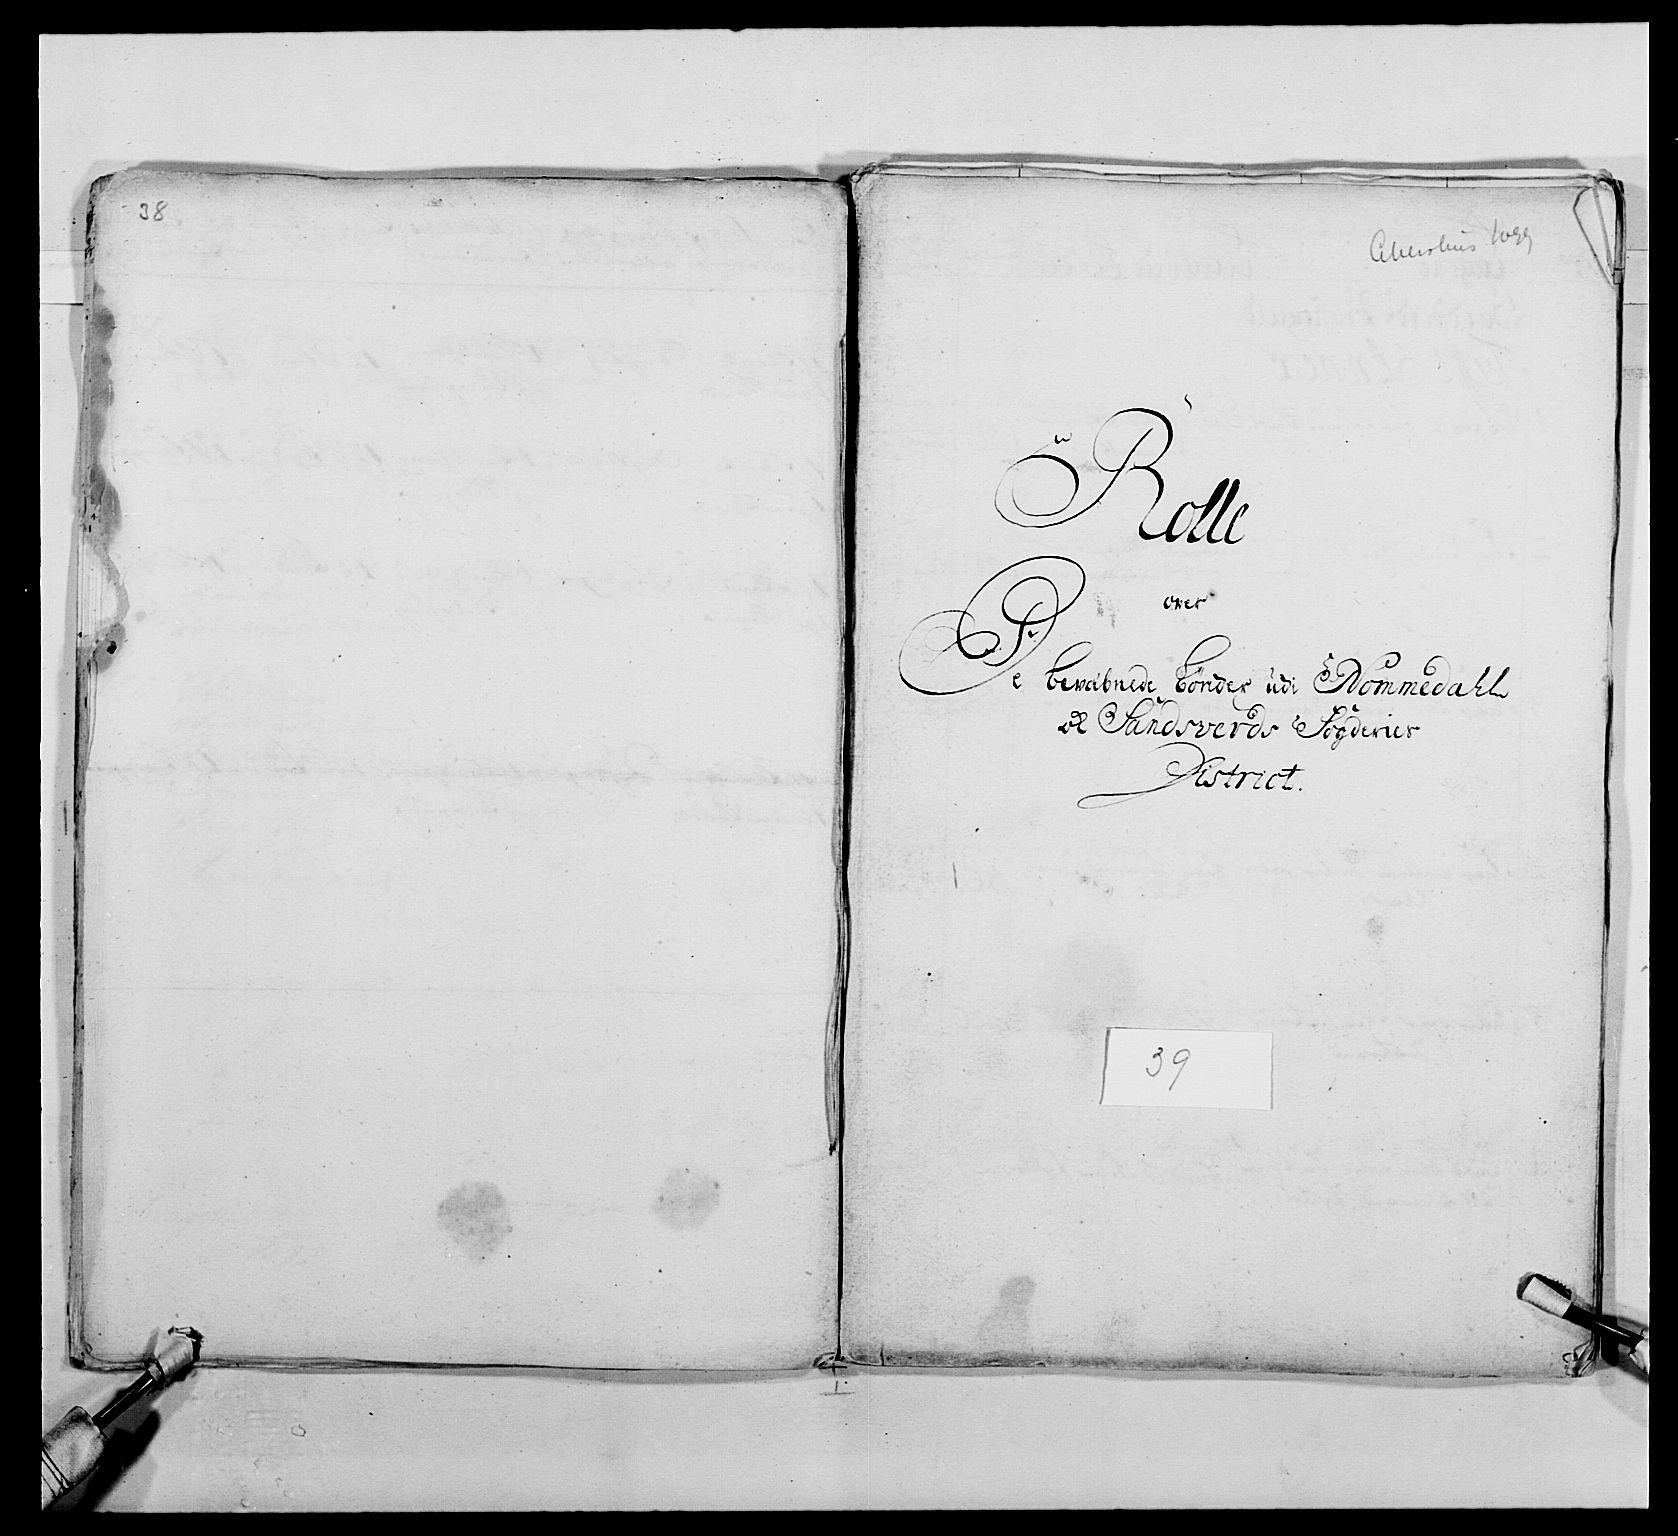 38
Akershus 1699
Rolle
over
De bevæbnede bönder udi Nommedahl
oc Sandsverds Fogderier
District.
39